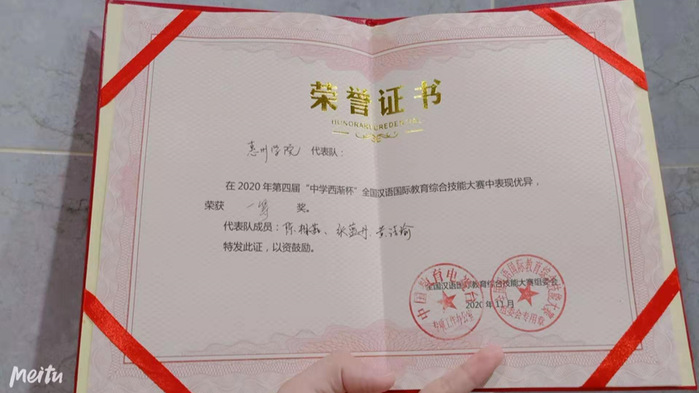 荣誉证书
HONORARY CREDENTIAL
惠州学院 代表队：
在 2020 年第四届“中学西渐杯”全国汉语国际教育综合技能大赛中表现优异，
荣获 一等 奖。
代表队成员：陈 、张 黄 瑜
特发此证，以资鼓励。
全国汉语国际教育综合技能大赛组委会
2020 年 11 月
中国教育电视台
Meitu